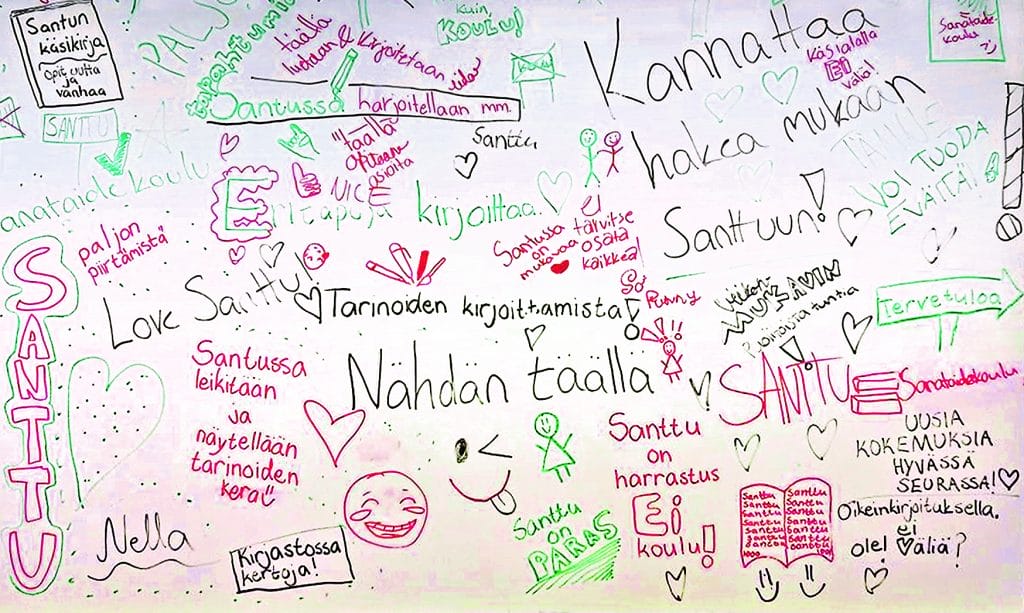 Santun
käsikirja
Opit uutta
ja
vanhaa
SANTTU
PALJ
tapahtumia
täällä
luetaan & kirjoitetaan
Santussa harjoitellaan mm.
Kuin
KOULU!
Koulu
Kannattaa
hakea mukaan
Santtuun!
Käsialalla
EI
väliä!
Sanataide-
koulu
VOI TUODA
EVÄITÄ!
anataidekoulu
täällä
opitaan
asioita
NICE
Santtu
Eritapoja kirjoittaa.
paljon
piirtämistä
SANTTU
Love Santtu!
Santussa
on
mukavaa
ei
tarvitse
osata
kaikkea!
Tarinoiden kirjoittamista!
Punny
Tervetuloa
Santussa
leikitään
ja
näytellään
tarinoiden
kera
Nähdän täällä
SANTTU
Sanataidekoulu
Santtu
on
harrastus
Ei
koulu!
UUSIA
KOKEMUKSIA
HYVÄSSÄ
SEURASSA!
Santtu Santtu
Santtu Santtu
Santtu Santtu
Santtu Santtu
Santtu Santtu
Santtu Santtu
Oikeinkirjoituksella.
ei
ole! väliä?
Santtu
on
PARAS
Nella
Kirjastossa
kertoja!